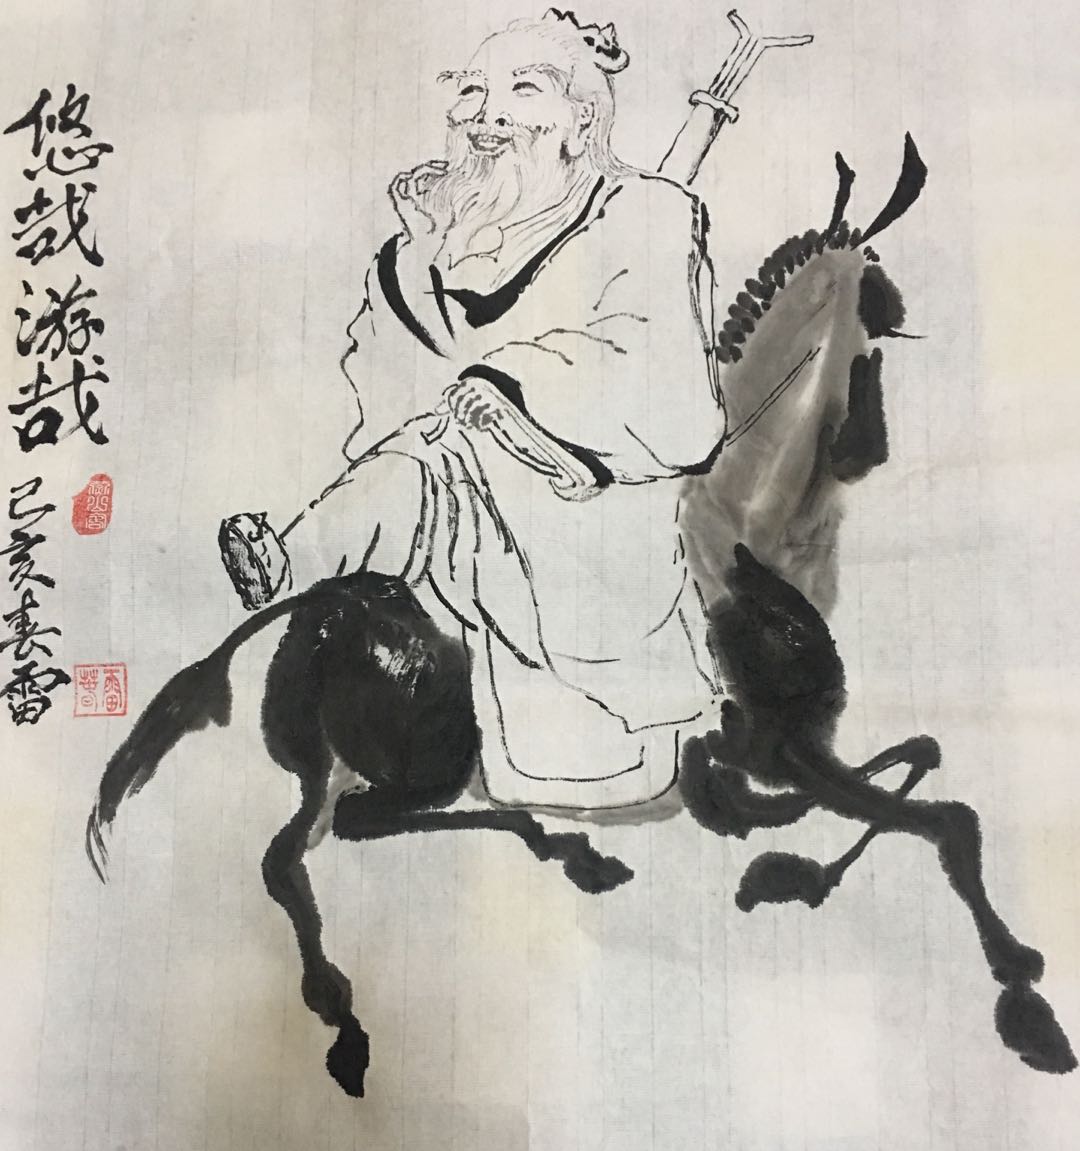 悠哉游哉
己亥春雷